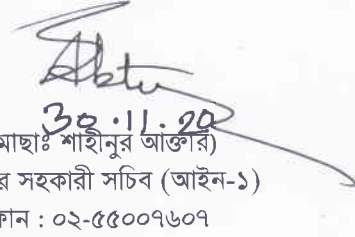 ৩০.১১.২০
মোছাঃ শাহীনুর আক্তার)
র সহকারী সচিব (আইন-১)
ফোন : ০২-৫৫০০৭৬০৭